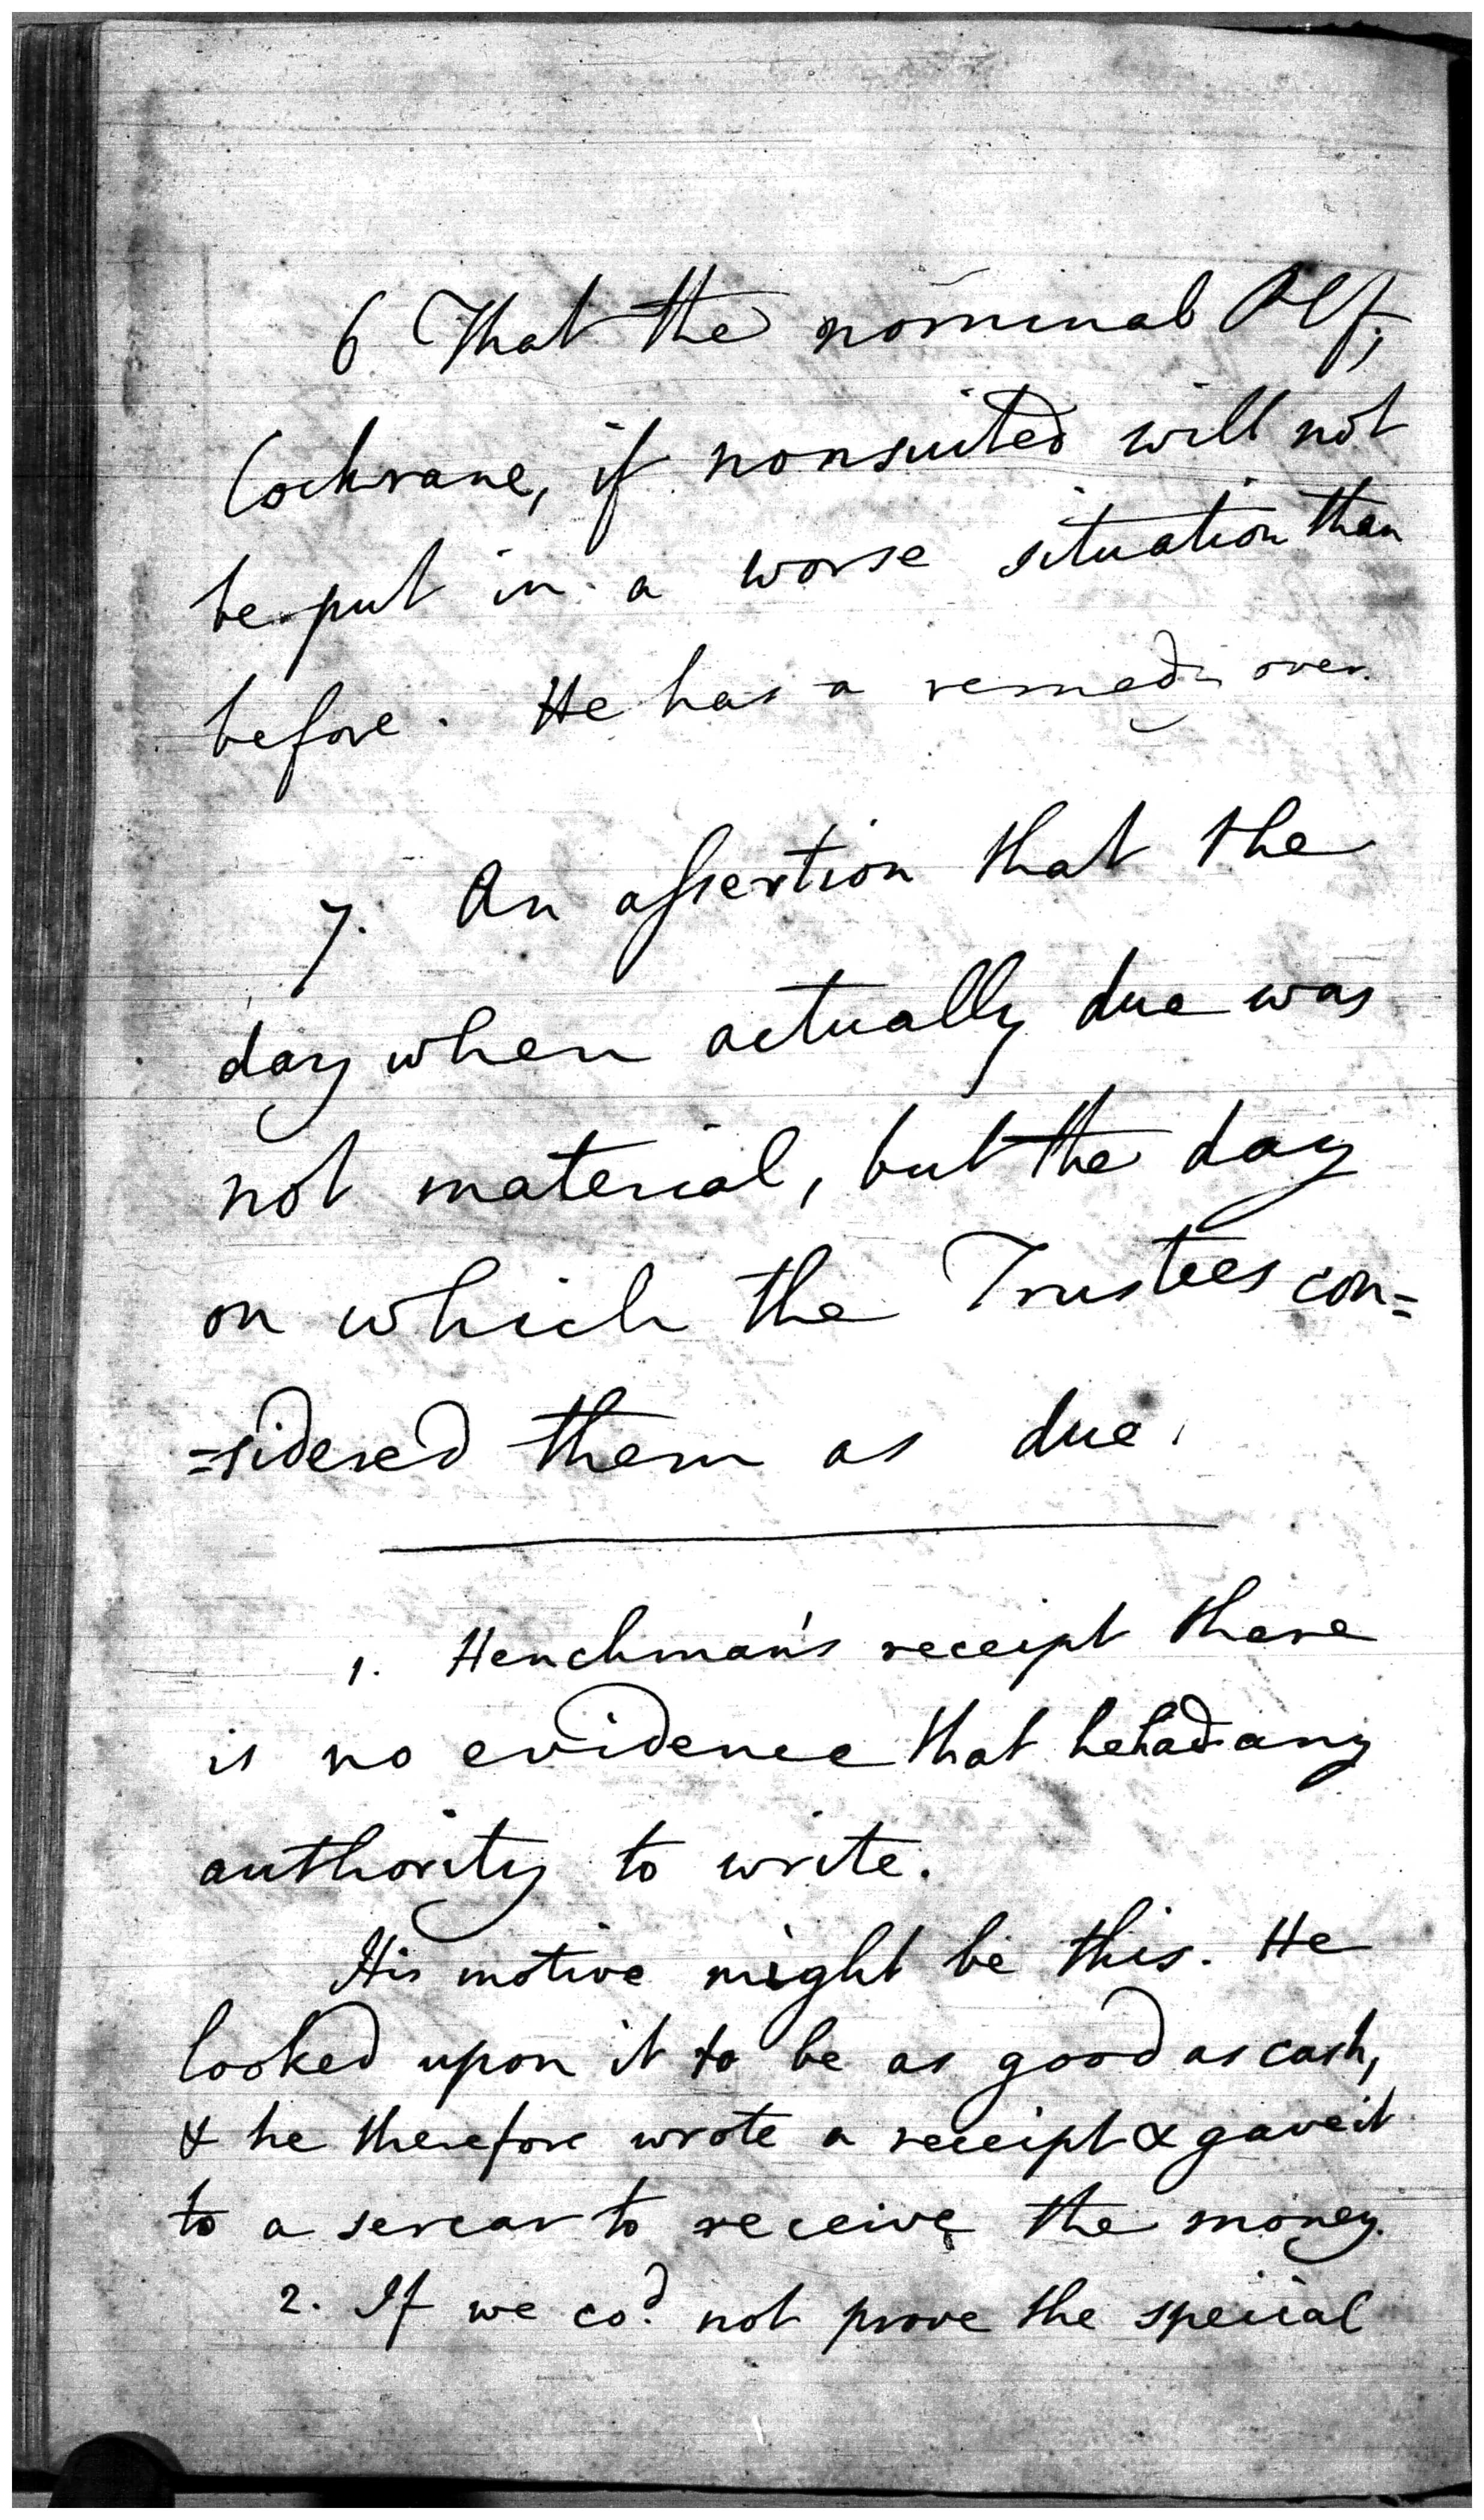 6 That the nominal Plf,
Cochrane, if nonsuited will not
be put in a worse situation than
before. He has a remedy over.
7. An assertion that the
day when actually due was
not material, but the day
on which the Trustees con=
=sidered them as due.
1. Henchman's receipt there
is no evidence that he had any
authority to write.
His motive might be this. He
looked upon it to be as good as cash,
& he therefore wrote a receipt & gave it
to a to receive the money.
2. If we cod. not prove the special